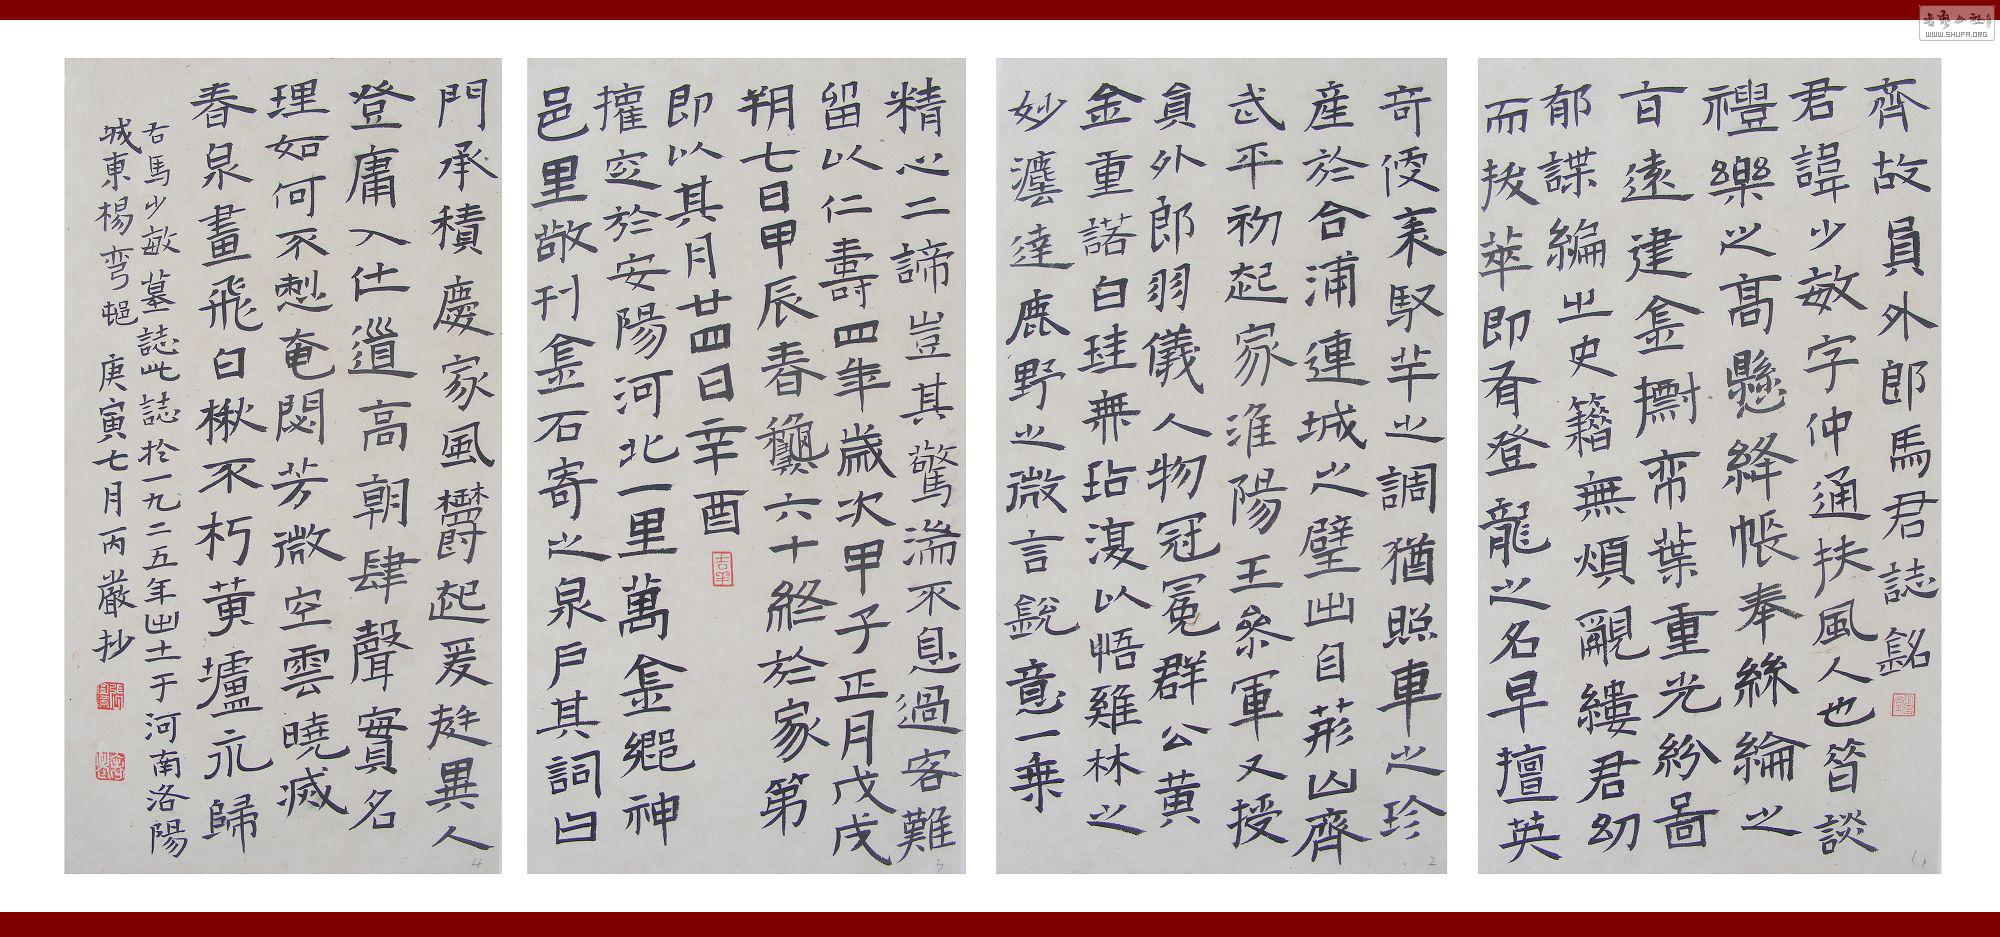 齊故員外郎馬君誌銘
君諱少敏字仲通扶風人也昝談
禮樂之高懸絳帳奉絲綸之
盲遠建金擶帝葉重光紛啚
郁諜編之史籍無煩覼縷君幼
而拔萃即有登龍之名早擅英
奇便秉馭羋之調猶照車之珍
產於合浦連城之璧出自荊山齊
武平初起家淮陽王參軍又授
員外郎羽儀人物冠冕群公黄
金重諾白珪無玷澓以悟雞林之
妙瀍達鹿野之微言銳意一乘
精心二諦豈其驚湍不息過客難
留以仁壽四年歲次甲子正月戊戌
朔七日甲辰春龝六十終於家第
即以其月廿四日辛酉
攉空於安陽河北一里萬金鄉神
邑里敬刊金石寄之泉戶其詞曰
門承積慶家風欝起爰挺異人
登庸入仕道高朝肆聲實名
理如何不愸奄閟芳微空雲曉滅
春泉晝飛白楸不朽黄壚永歸
右馬少敏墓誌此誌於一九二五年出土于河南洛陽
城東楊彎邨 庚寅七月丙嚴抄
4
3
2
1
WWW.SHUFA.ORG